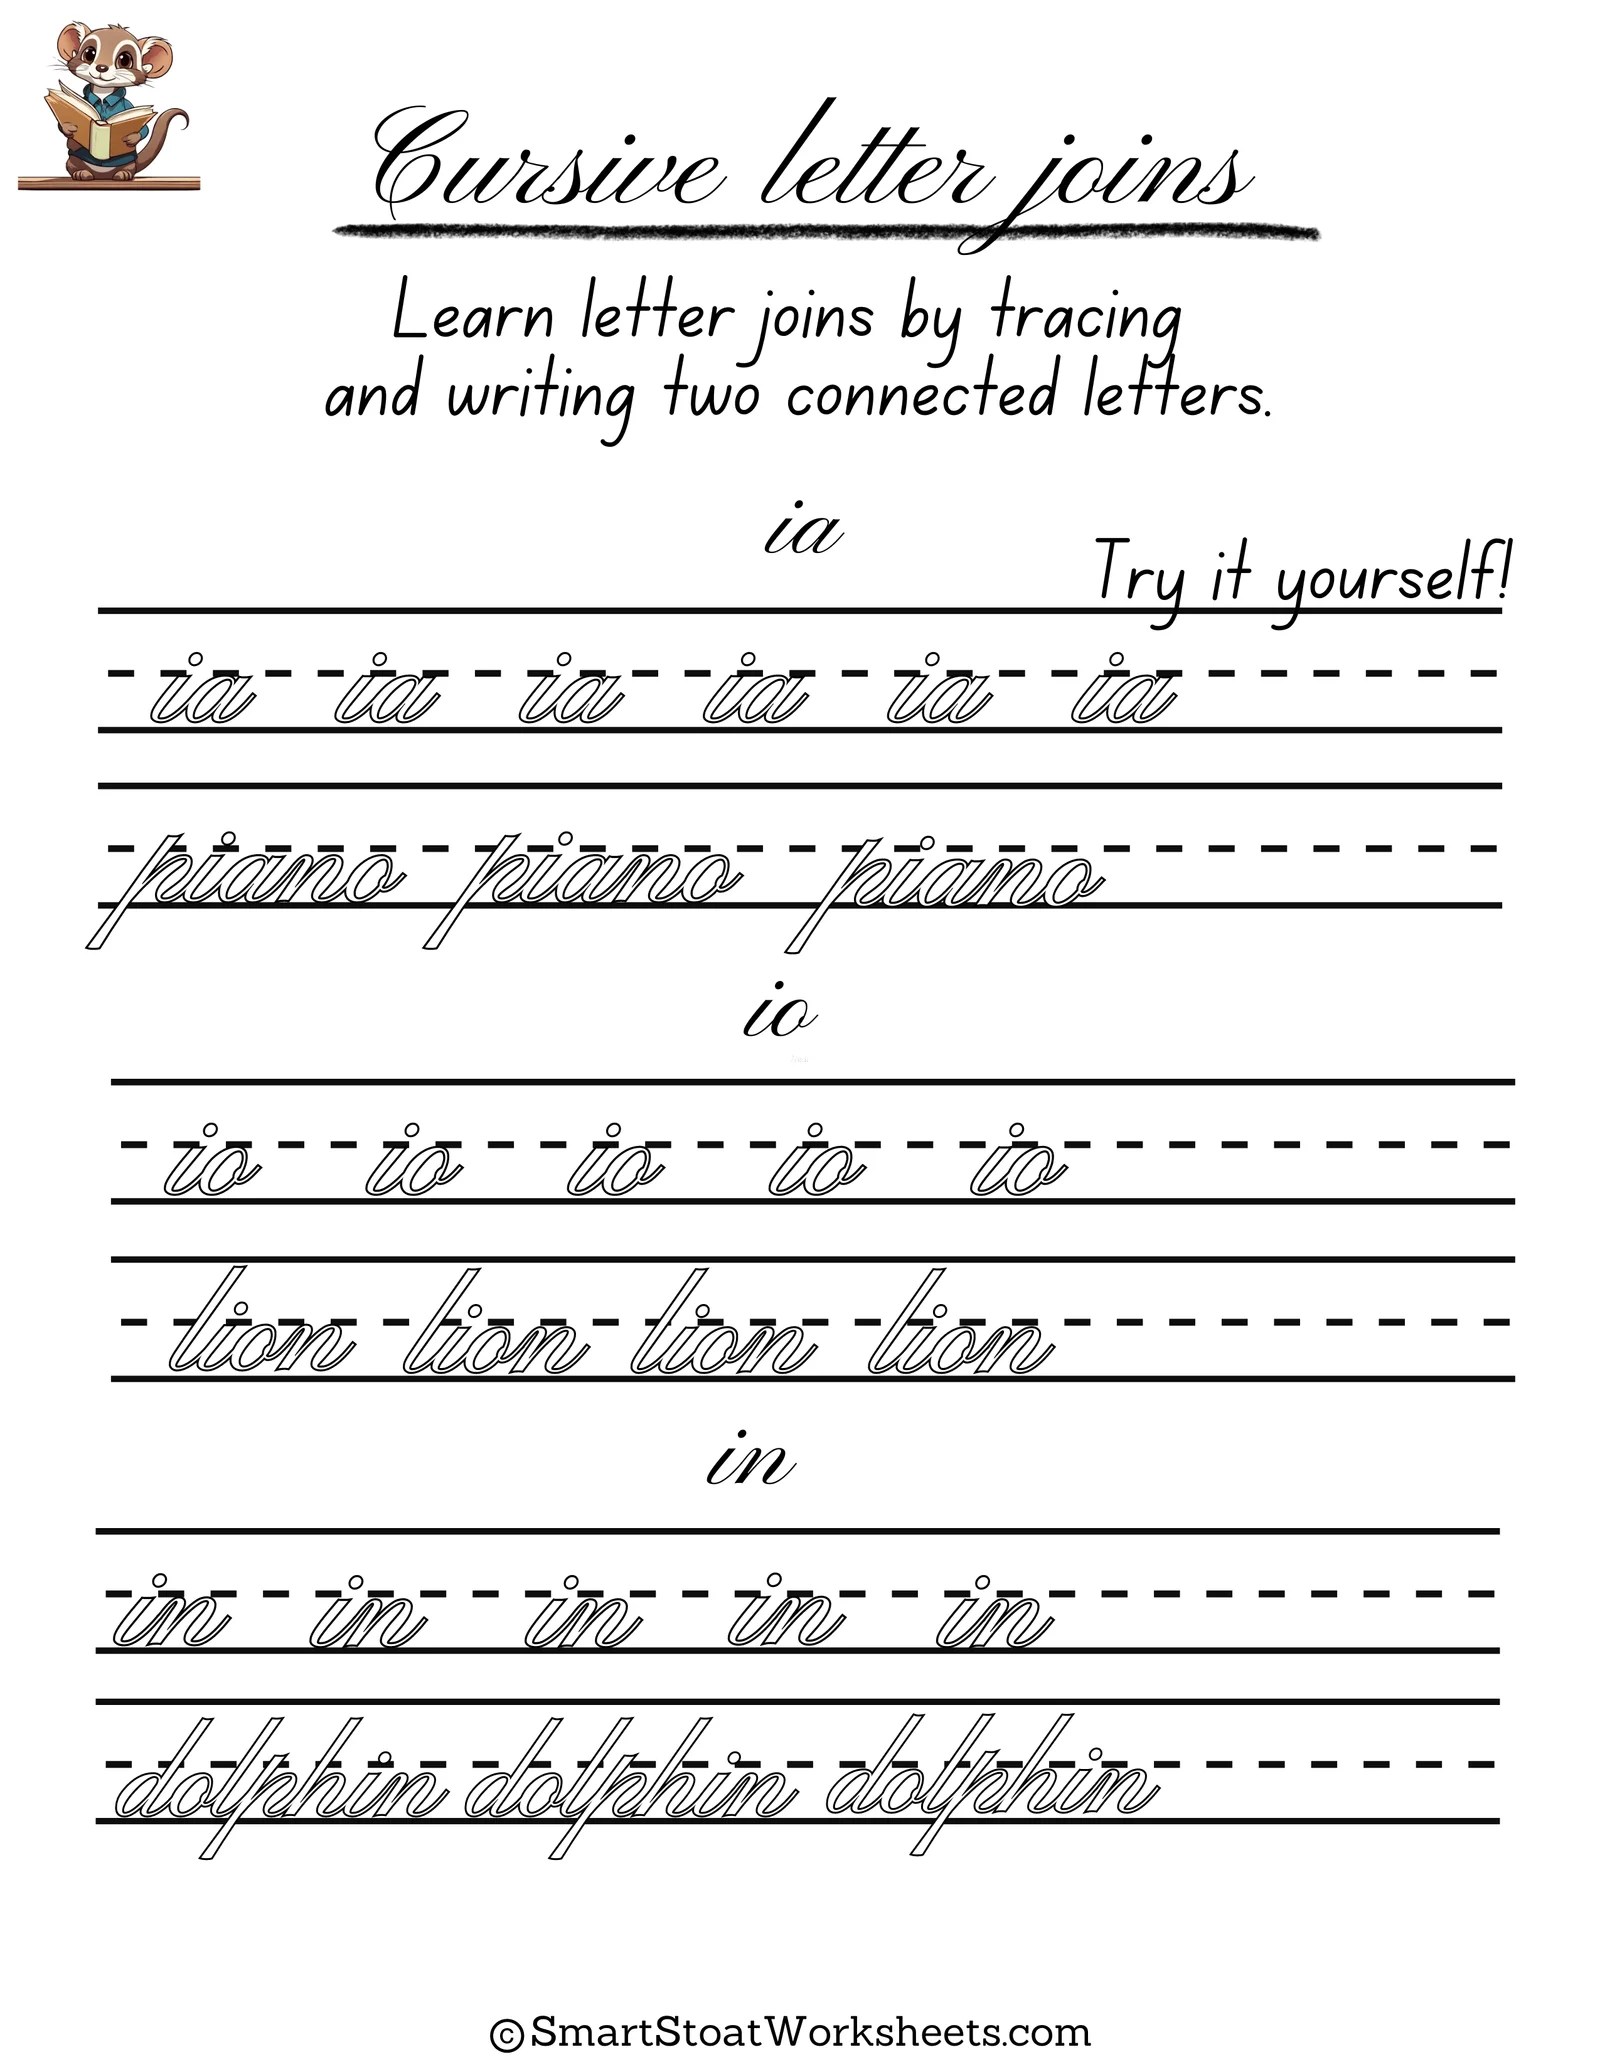 Cursive letter joins
Learn letter joins by tracing
and writing two connected letters.
ia
Try it yourself!
ia ia ia ia ia ia
piano piano piano
io
io io io io io
lion lion lion lion
in
in in in in in
dolphin dolphin dolphin
©SmartStoatWorksheets.com